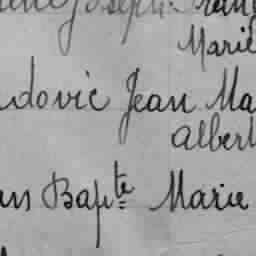 Joseph
Marie
udovic Jean Ma
Albert
ns Bapte Marie